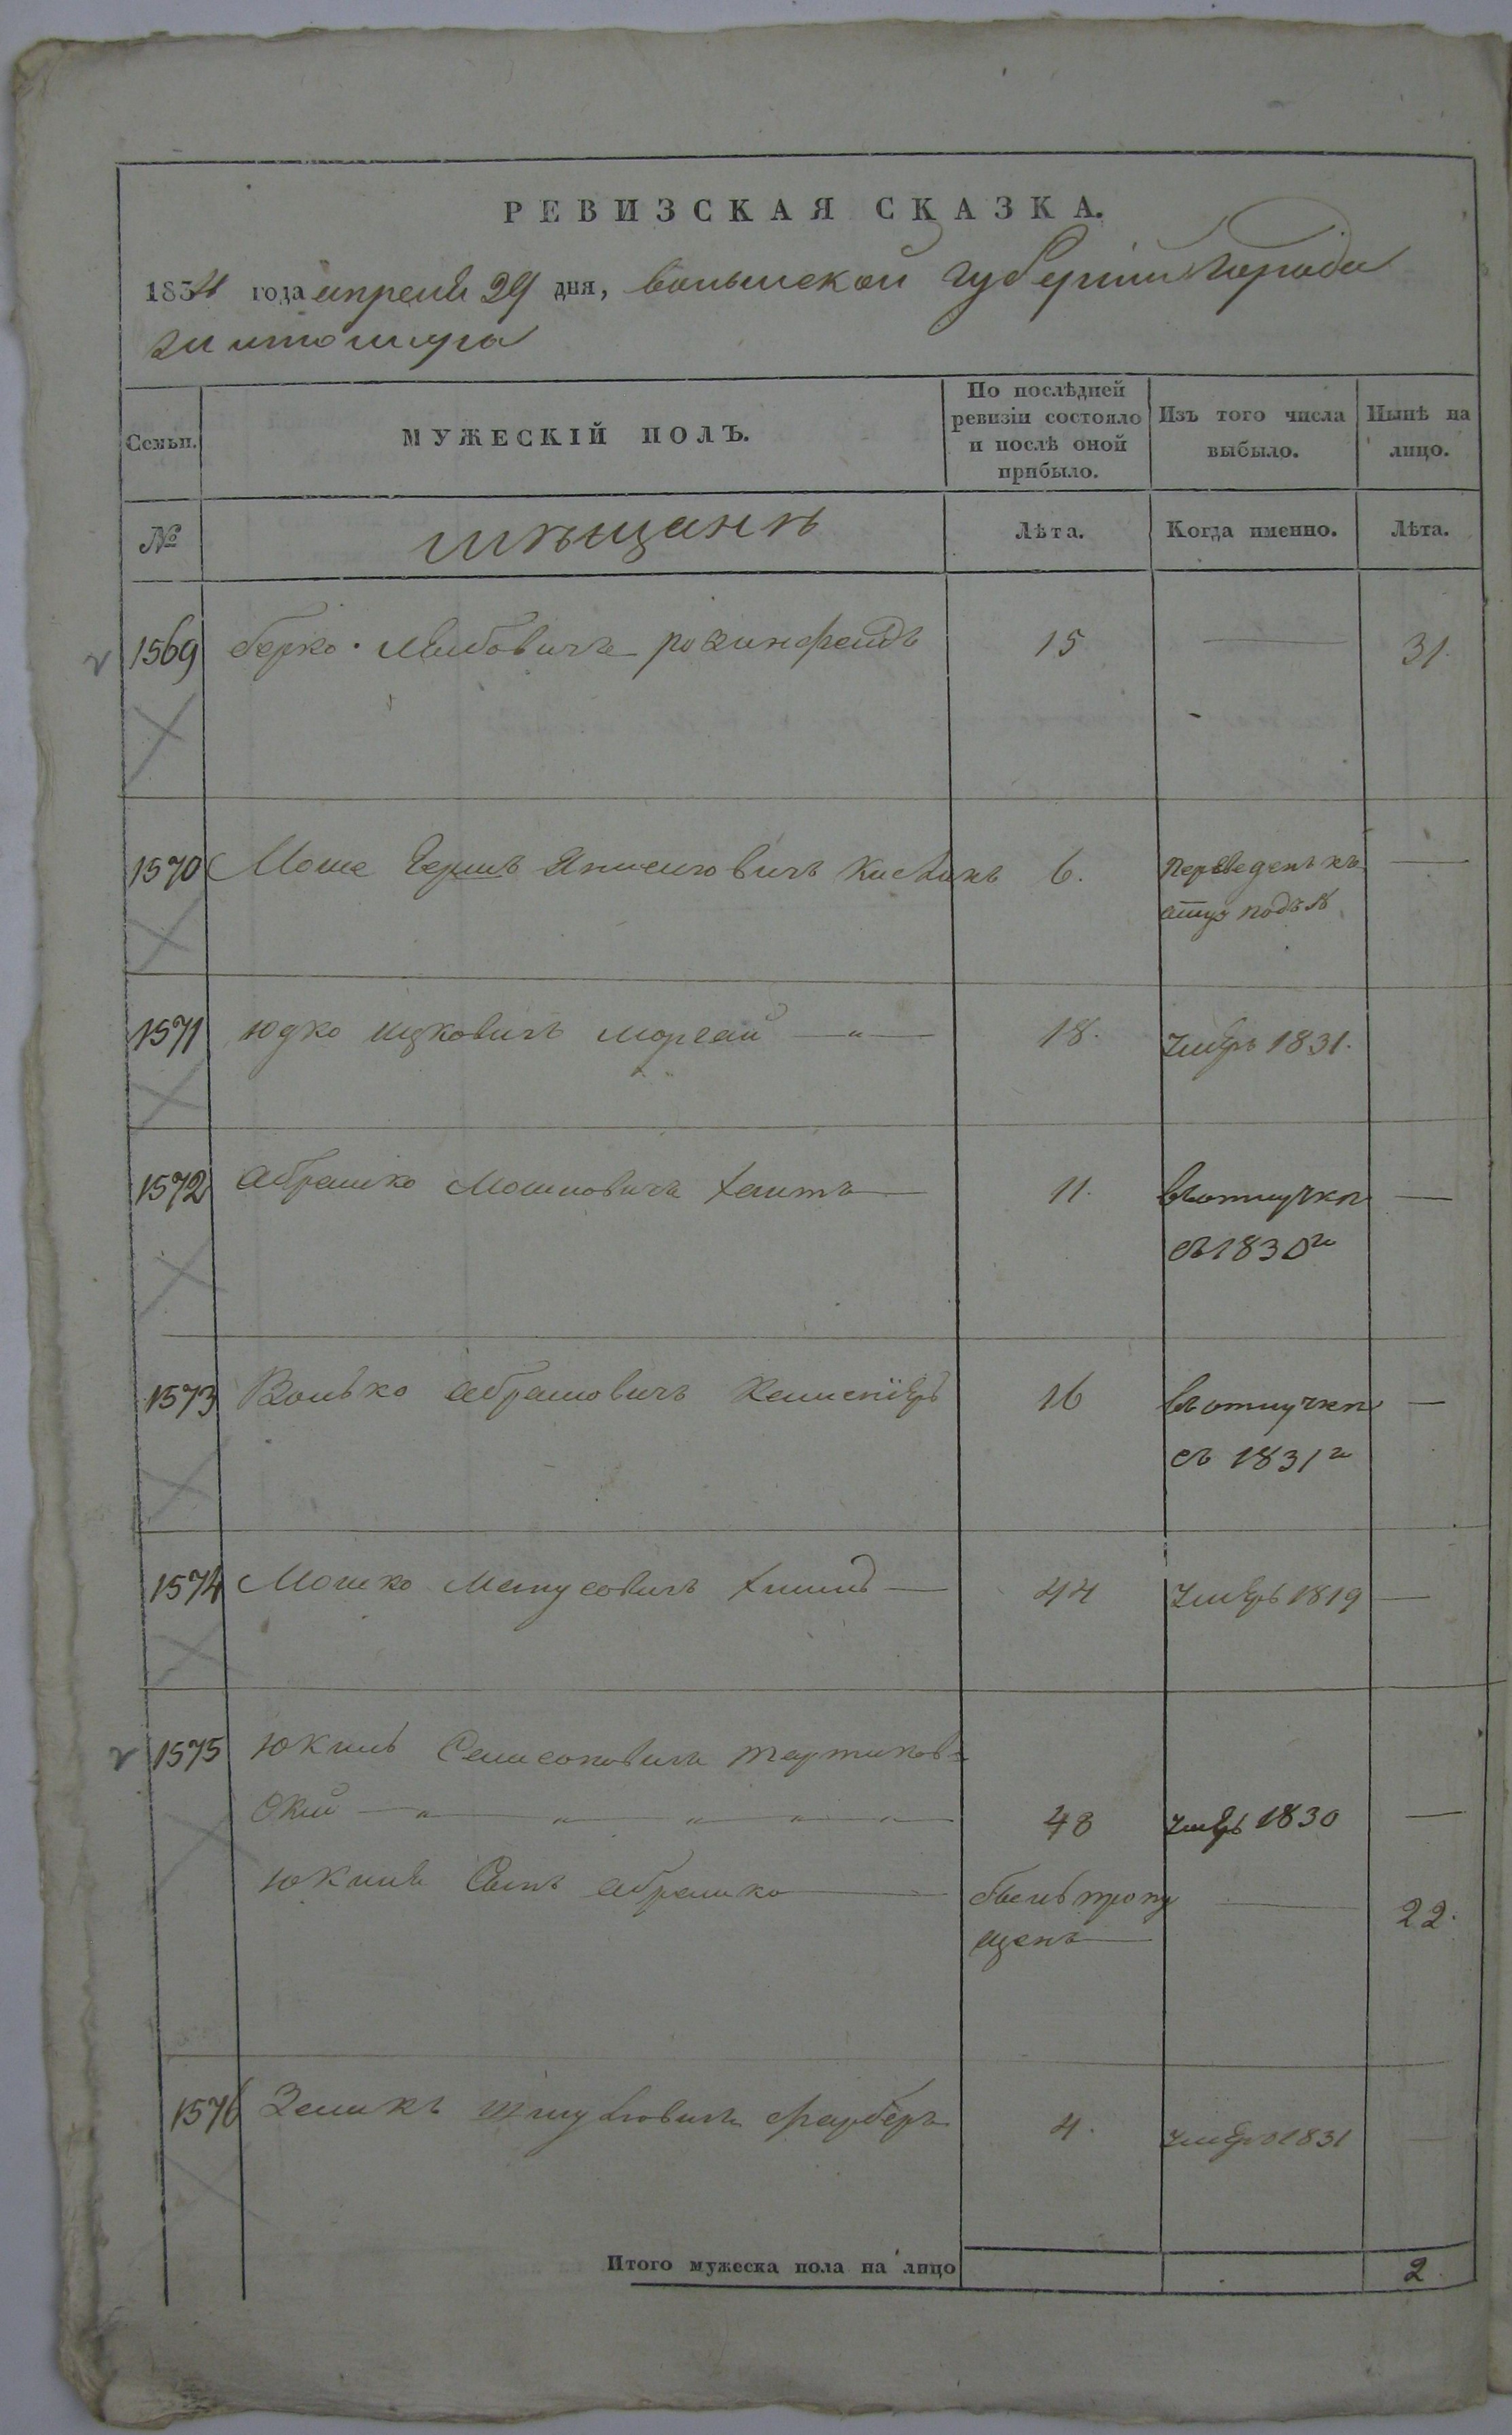 РЕВИЗСКАЯ СКАЗКА.
1834 года апреля 29 дня, волынской губернии города
житомира
Семьи.
МУЖЕСКІЙ ПОЛЪ.
По послѣдней ревизіи состояло и послѣ оной прибыло.
Изъ того числа выбыло.
Нынѣ на лицо.
№
мѣщанѣ
Лѣта.
Когда именно.
Лѣта.
1569 берко Лейбовичъ розинфельдъ 15 — 31.
1570 Мошe Гершъ Янкелювичъ 6. переведенъ къ —
отцу подъ №
1571 юдко ицковичъ 18. умеръ 1831.
1572 абрамко Мошковичъ 11. въ отлучкѣ —
съ 1830го
1573 Волько абрамовичъ 16 въ отлучкѣ —
съ 1831го
1574 Мошко Матусовичъ 44 умеръ 1819 —
1575 юкиль Семсоновичъ
ский 48 умеръ 1830 —
юкиля Сынъ абрамко былъ пропу — 22.
щенъ
1576 Зеликъ фарберъ 4. умеръ 1831
Итого мужеска пола на лицо 2